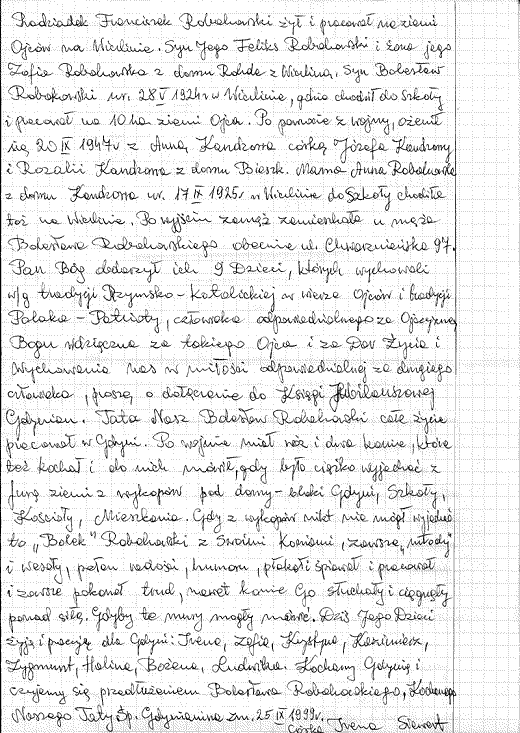 Pradziadek Franciszek Robakowski żył i pracował na ziemi
Ojców na Wiczlinie. Syn Jego Feliks Robakowski i żona jego
Zofia Robakowska z domu Rohde z Wiczlina. Syn Bolesław
Robakowski ur. 28 V 1924 r w Wiczlinie, gdzie chodził do szkoły
i pracował na 10 ha ziemi Ojca. Po powrocie z wojny, ożenił
się 20 IX 1947 r z Anną Kandzorra córką Józefa Kandzorry
i Rozalii Kandzorra z domu Bieszk. Mama Anna Robakowska
z domu Kandzorra ur. 17 IX 1925 r w Wiczlinie do Szkoły chodziła
też na Wiczlinie. Po wyjściu zamąż zamieszkała u męża
Bolesława Robakowskiego obecnie ul. Chwarznieńska 97.
Pan Bóg obdarzył ich 9 Dzieci, których wychowali
w/g tradycji Rzymsko-Katolickiej w wierze Ojców i tradycji
Polaka - Patrioty, człowieka odpowiedzialnego za Ojczyznę
Bogu wdzięczna za takiego Ojca i za Dar Życia i
Wychowania nas w miłości odpowiedzialnej za drugiego
człowieka, proszę o dołączenie do Księgi Jubileuszowej
Gdynian. Tata Nasz Bolesław Robakowski całe życie
pracował w Gdyni. Po wojnie miał wóz i dwa konie, które
też kochał i do nich mówił, gdy było ciężko wyjechać z
furą ziemi z wykopów pod domy-bloki Gdyni, Szkoły,
Kościoły, Mieszkania. Gdy z wykopów nikt nie mógł wyjechać
to „Bolek” Robakowski z Swoimi Koniami, zawsze „młody”
i wesoły, pełen radości, humoru, śpiewał i pracował
i zawsze pokonał trud, nawet konie Go słuchały i ciągnęły
ponad siłę. Gdyby te mury mogły mówić. Dziś Jego Dzieci
żyją i pracują dla Gdyni: Irena, Zofia, Krystyna, Kazimierz,
Zygmunt, Halina, Bożena, Ludwika. Kochamy Gdynię i
czujemy się przedłużeniem Bolesława Robakowskiego, Kochanego
Naszego Taty Śp. Gdynianina zm. 25 IX 1999 r.
córka Irena Siewert